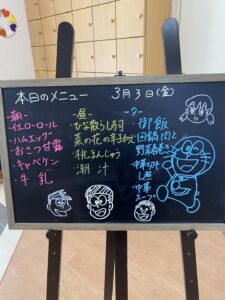 本日のメニュー 3月3日(金)
-朝-
・イエローロール
・ハムエッグ
・おさつ甘露
・キャベケン
・牛乳
-昼-
ひな散らし寿司
菜の花の辛子和え
桃まんじゅう
潮汁
-夕-
・御飯
・回鍋肉と
野菜春巻き
・中華
・中華
スープ